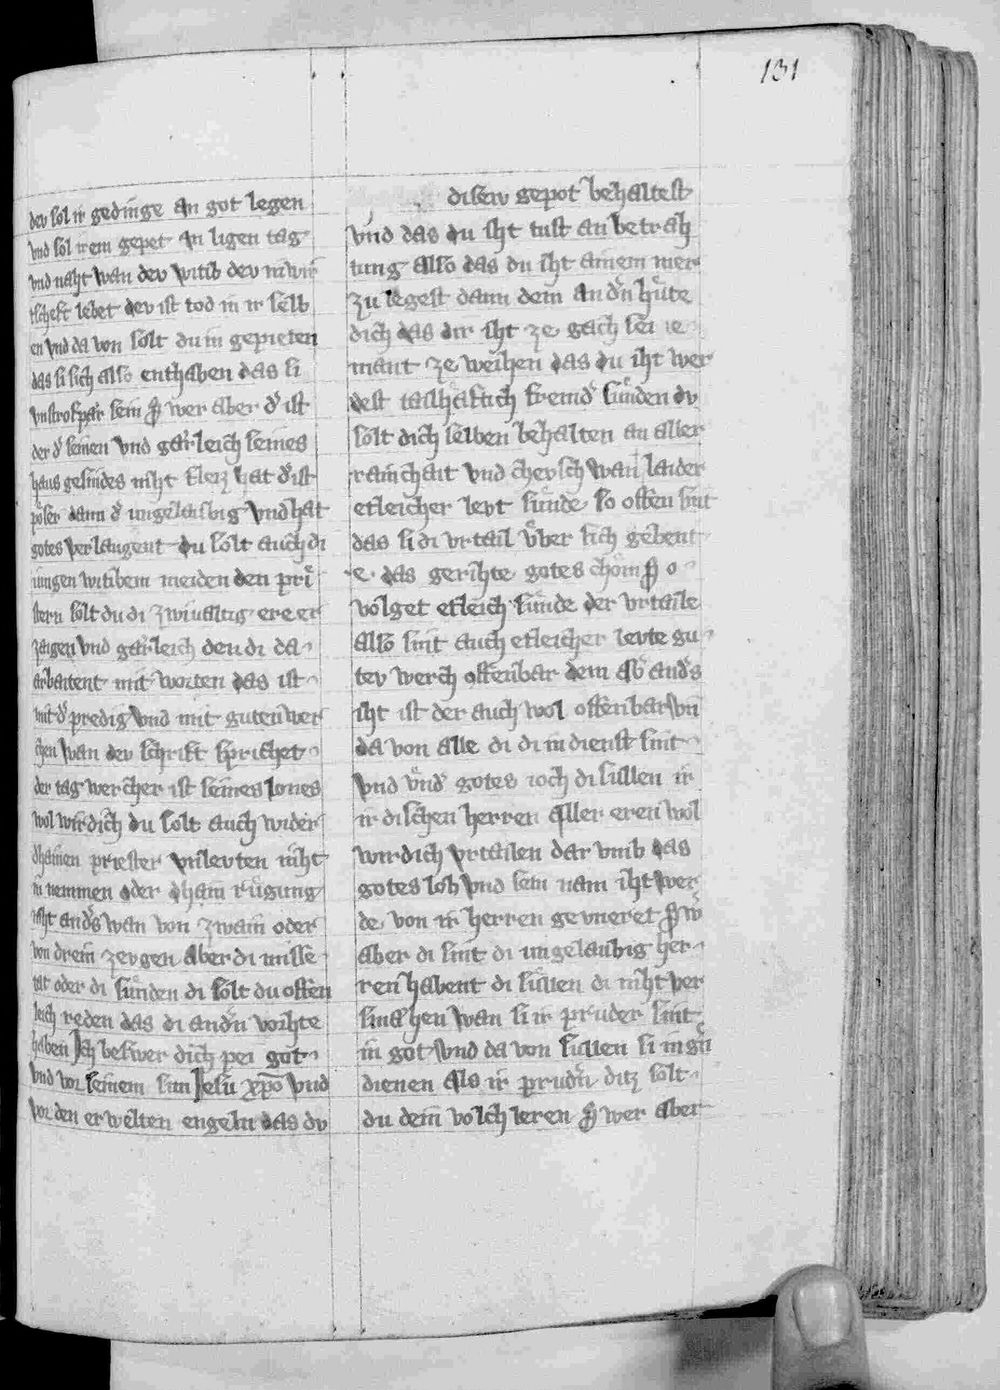 131
dev sol ir gedinge an got legen
vnd sol irem gepet an ligen tag
vnd naht wan dev witib dev in wir
tscheft lebet dev ist tod in ir selb
en vnd da von solt du in gepieten
das si sich also enthaben das si
vnstrofpar sein ꝓ wer aber d' ist
der d' seinen vnd gar leich seines
haus gesindes niht fleiz hat d' ist
póser dann d' vngelaubig vnd hat
gotes verlaugent du solt auch di
iungen witiben meiden den pri
stern solt du di zwiualtig ere er
zaigen vnd gar leich den di da
arbaitent mit worten das ist
mit d' predig vnd mit guten wer
chen wan dev schrift sprichet
der tag wercher ist seines lones
wol wirdich du solt auch wider
dhainen priester vnlevten niht
in nemmen oder dhain rúgung
niht and's wan von zwain oder
von drein zevgen aber di misse
tat oder di súnden di solt du offen
leich reden das di and'n vorhte
haben Ich beswer dich pei got
vnd vor seinem sun Jesu xpo vnd
vor den erwelten engeln das du
disew gepot behaltest
vnd das du iht tust an betrah
tung also das du iht ainem mer
zu legest dann dem and'n húte
dich das dir iht ze gach sei ie
mant ze weihen das du iht wer
dest tailhaftich fremd' súnden dv
solt dich selben behalten an aller
rainchait vnd chevsch wan laider
etleicher levt súnde so offen sint
das si di vrtail v́ber sich gebent
e das gerihte gotes chóm ꝓ o
volget etleich súnde der vrtaile
also sint auch etleicher levte gu
tev werch offenbar dem ab and's
iht ist der auch wol offenbar vn̄
da von alle di di in dienst sint
vnd v́nd' gotes ioch di sullen ir
ir dischen herren aller eren wol
wirdich vrtailen dar vmb das
gotes lob vnd sein nam iht wer
de von ir herren gevneret ꝓ w'
aber di sint di vngelaubig her
ren habent di sullen di niht ver
smæhen wan si ir pruder sint
in got vnd da von sullen si in g'n
dienen als ir prud'n ditz solt
du dem volch leren ꝓ wer aber